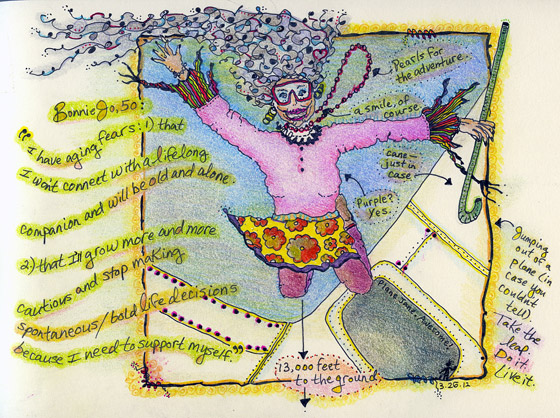 Bonnie Jo, 50:
"I have aging fears: 1) that
I won't connect with a lifelong
companion and will be old and alone.
2) that I'll grow more and more
cautious and stop making
spontaneous/bold life decisions
because I need to support myself."
Pearls for
the adventure.
a smile, of
course
cane—
just in
case
Purple?
Yes.
Jumping
out of
plane (in
case you
couldn't
tell).
Take the
leap.
Do it.
Live it.
13,000 feet
to the ground
3.26.12